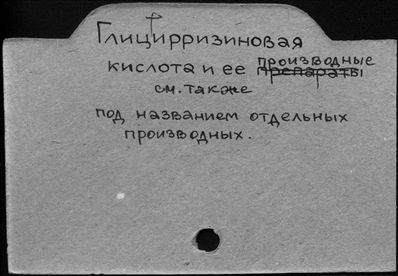 Глицирризиновая
кислота и ее производные
препараты
см. также
под названием отдельных
производных.